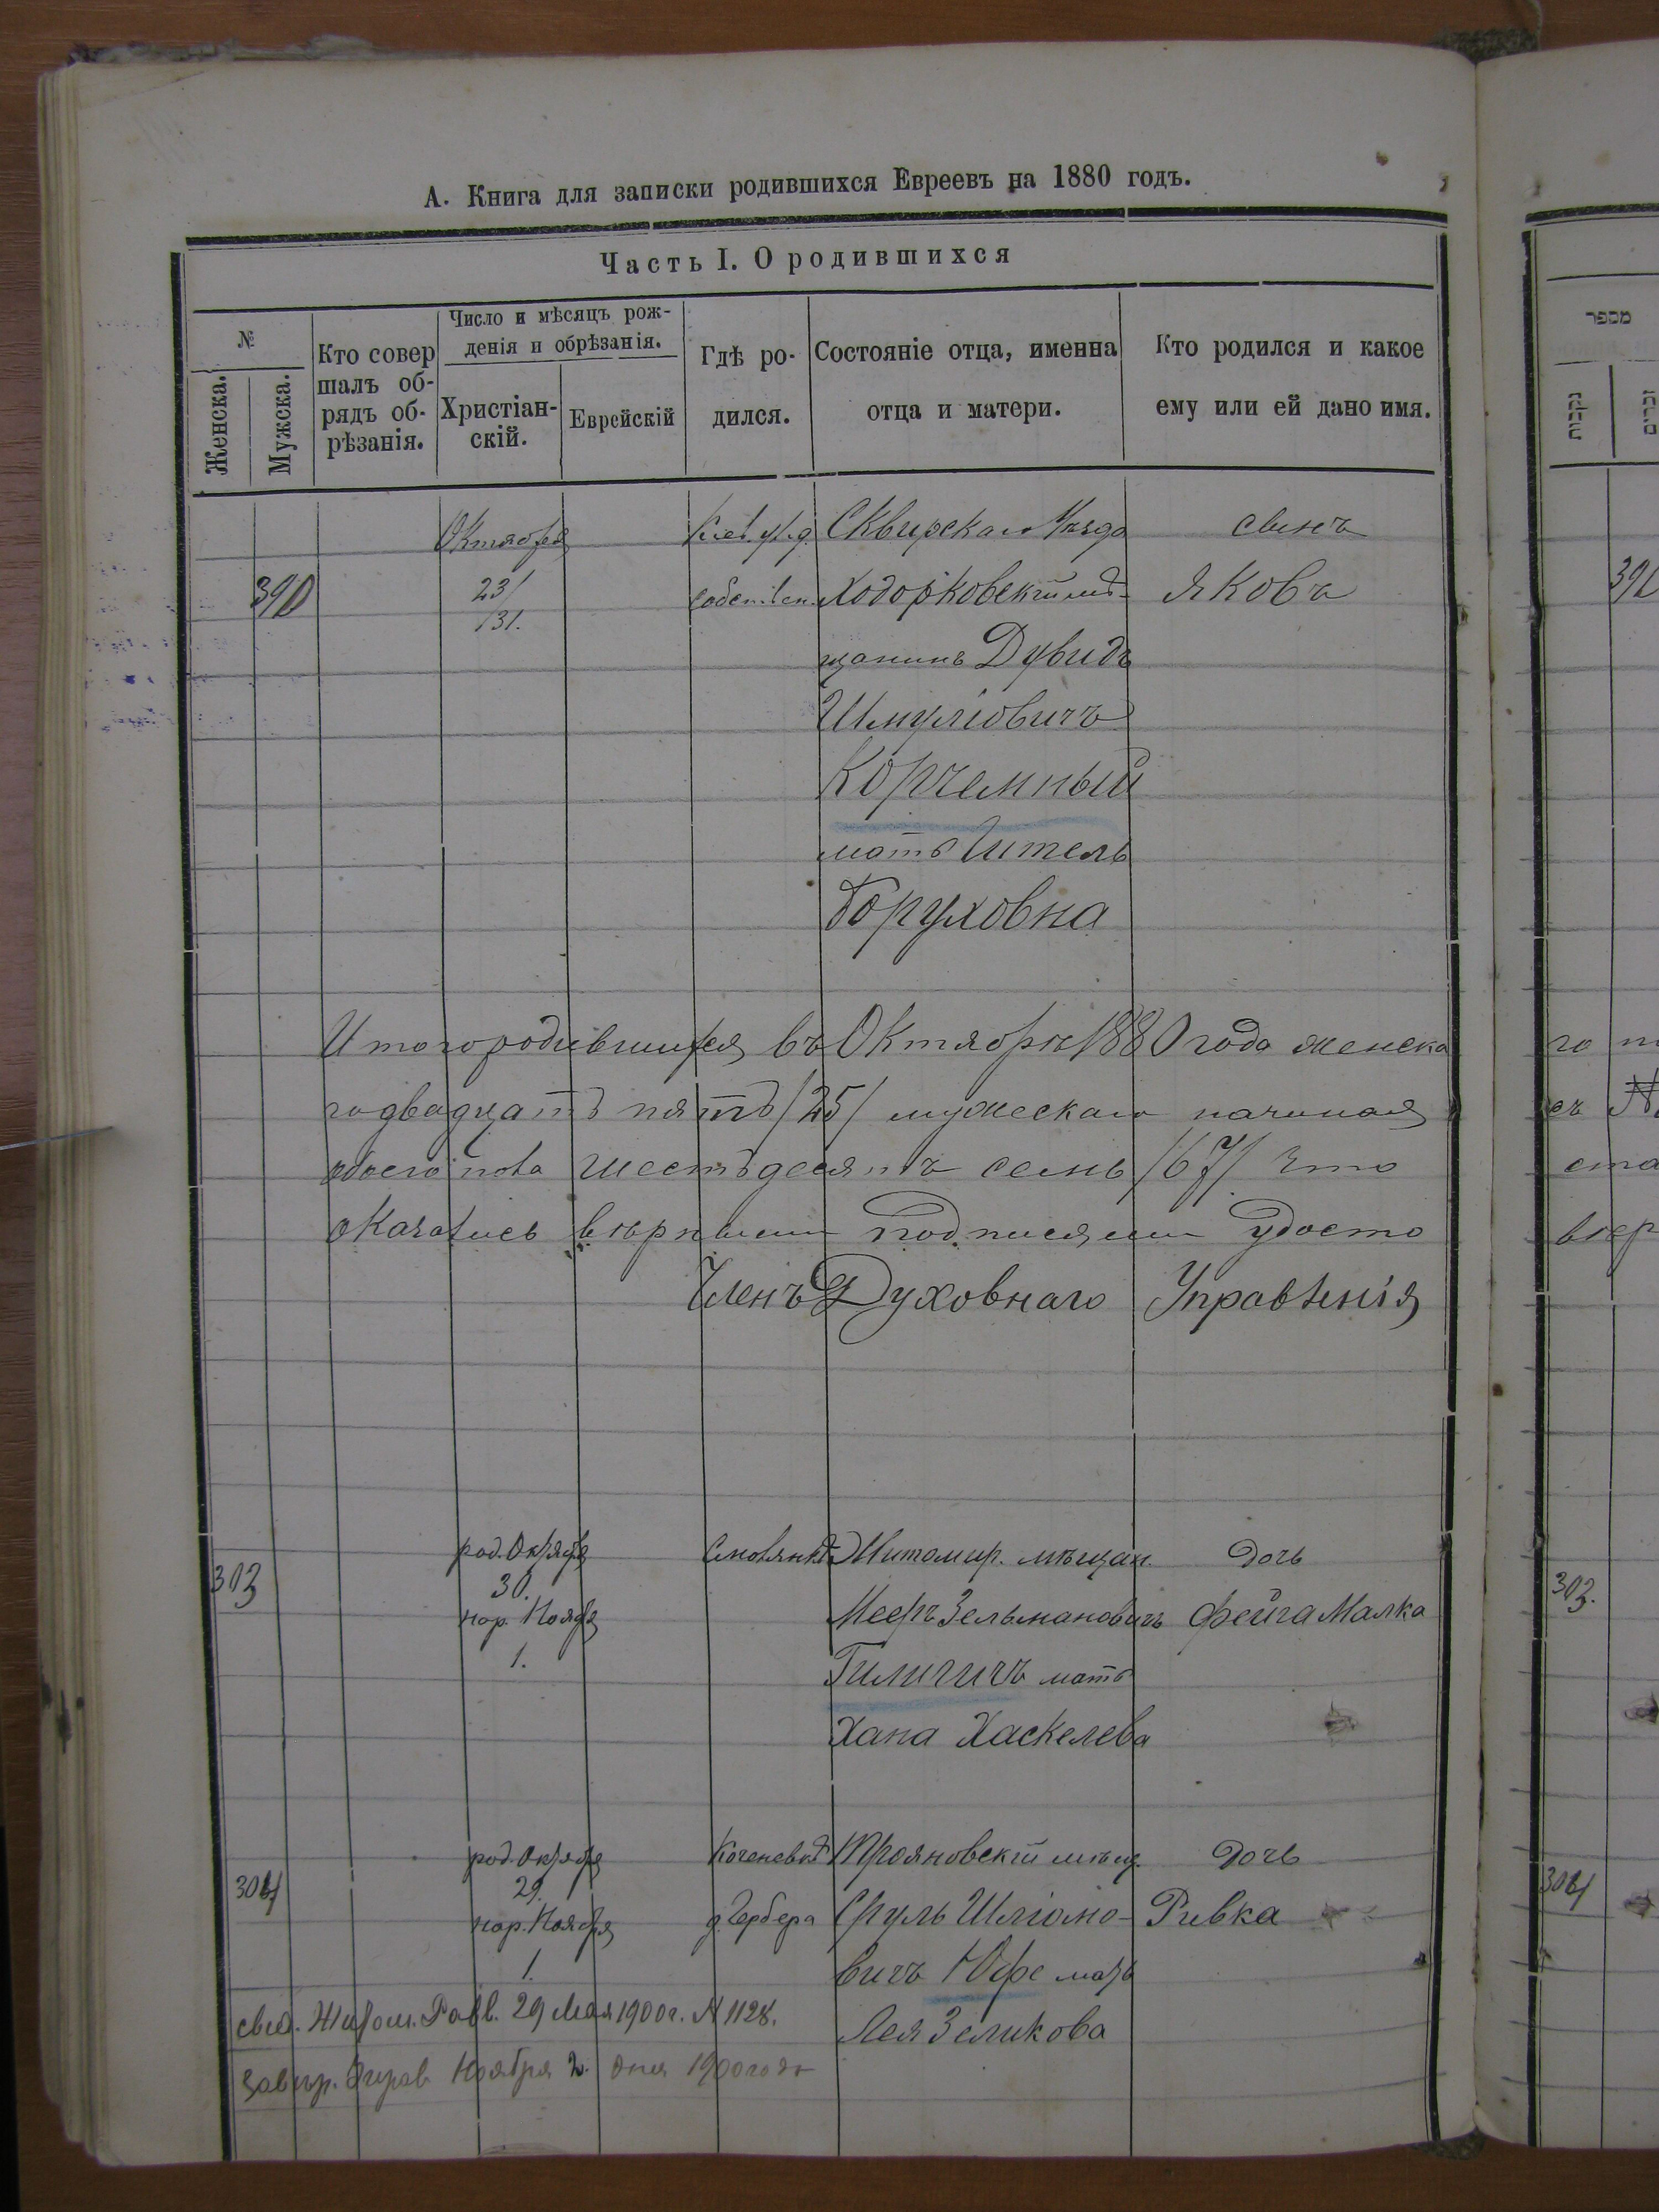 А. Книга для записки родившихся Евреевъ на 1880 годъ.
Часть I. О родившихся
№
Женска.
Мужска.
Кто совер
шалъ об-
рядъ об-
рѣзанія.
Число и мѣсяцъ рож-
денія и обрѣзанія.
Христіан-
скій.
Еврейскій
Гдѣ ро-
дился.
Состояніе отца, именна
отца и матери.
Кто родился и какое
ему или ей дано имя.
390
Октября
23/
/31.
Сквирскаго Уѣзда
Ходорковскій мѣ-
щанинъ Дувидъ
Шмуліовичъ
Корчемный
мать Ител
Боруховна
сынъ
Яковъ
Итого родившихся въ Октябрѣ 1880 года женска
го двадцать пять /25/ мужескаго начиная
обоего пола шестьдесятъ семь /67/ что
оказались вѣрными подписями удосто
Членъ Духовнаго Управленія
303
род. Октября
30.
нар. Ноября
1.
Житомир. мѣщан.
Мееръ Зельмановичъ
Гиличичъ мать
Хана Хаскелева
дочь
Фейга Малка
304
род. Октября
29.
нар. Ноября
1.
д. Гербера
Трояновскій мѣщ.
Сруль Шліомо-
вичъ Юфе мать
Лея Зеликова
дочь
Ривка
свид. Житом. Равв. 29 Мая 1900 г. N 1128.
Ноября 2. дня 1900 года
מספר
נקבות
זכרים
390
го
съ
ста
вѣр
303.
304